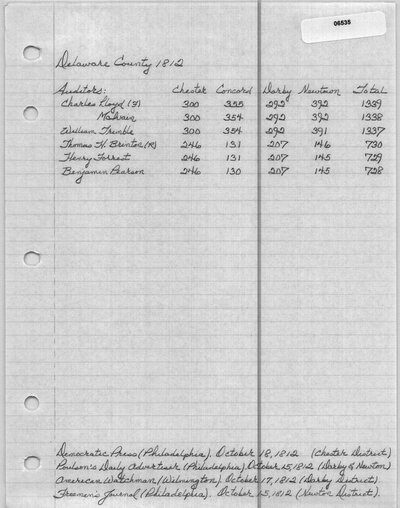 06535
Delaware County 1812
Auditors: Chester Concord Darby Newtown Total
Charles Lloyd (F) 300 355 292 392 1339
McIlvain 300 354 292 392 1338
William Trimble 300 354 292 391 1337
Thomas H. Brinton (R) 246 131 207 146 730
Henry Forrest 246 131 207 145 729
Benjamin Pearson 246 130 207 145 728
Democratic Press (Philadelphia). October 18, 1812 (Chester District)
Poulson's Daily Advertiser (Philadelphia). October 15, 1812 (Darby & Newton)
American Watchman (Wilmington). October 17, 1812 (Darby District).
Freemen's Journal (Philadelphia). October 15, 1812 (Newton District).